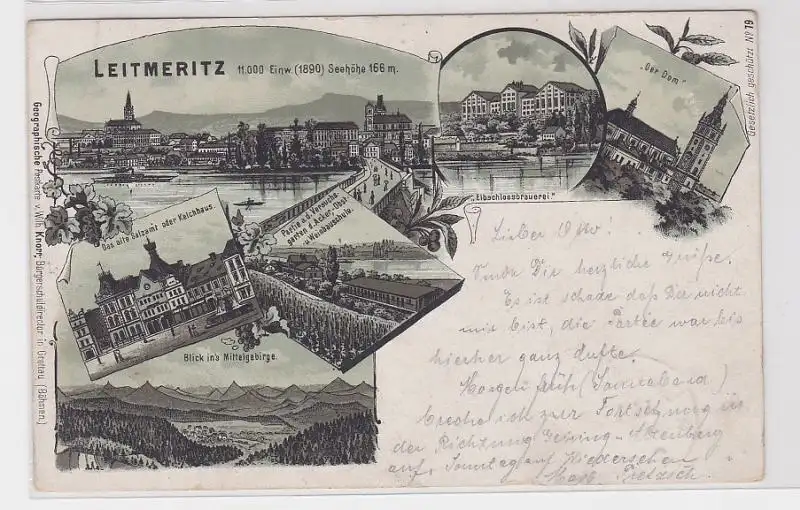 LEITMERITZ 11.000 Einw. (1890) Seehöhe 166 m.
"Elbschlossbrauerei."
"Der Dom"
Gesetzlich geschützt No 79
Geographische Postkarte v. Wilh. Knorr, Bürgerschuldirector in Grottau (Böhmen.)
Das alte Salzamt oder Kelchhaus.
Partie a.d. Versuchs-
garten d. Acker, Obst-
u. Weinbauschule.
Blick in's Mittelgebirge.
Lieber Otto.
Sende Dir herzliche Grüße.
Es ist schade daß Du nicht
mit bist, die Partie war bis
hierher ganz dufte.
Morgen früh (Sonnabend)
breche ich zur Fortsetzung in
der Richtung Geising-Altenberg
auf, Sonntag auf Wiedersehen